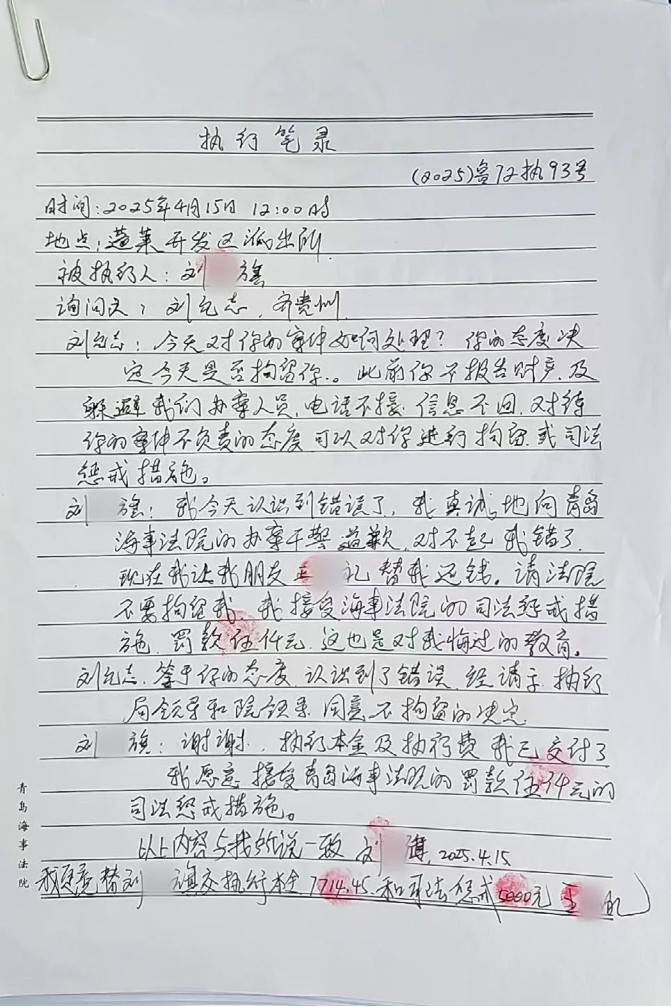 执行笔录
(2025)鲁72执93号
时间:2025年4月15日 12:00时
地点:蓬莱开发区派出所
被执行人:刘 旗
询问人:刘允志、齐贵州
刘允志:今天对你的案件如何处理?你的态度决
定今天是否拘留你。此前你不报告财产,及
躲避我们办案人员,电话不接,信息不回,对待
你的案件不负责的态度,可以对你进行拘留或司法
惩戒措施。
刘 旗:我今天认识到错误了,我真诚地向青岛
海事法院的办案干警道歉,对不起,我错了。
现在我让我朋友 礼替我还钱。请法院
不要拘留我,我接受海事法院的司法惩戒措
施,罚款伍仟元,这也是对我悔过的教育。
刘允志:鉴于你的态度,认识到了错误,经请示执行
局领导和院领导,同意不拘留的决定
刘 旗:谢谢,执行本金及执行费我已交付了
我愿意接受青岛海事法院的罚款伍仟元的
司法惩戒措施。
以上内容与我所说一致 刘 旗,2025.4.15
我愿意替刘 旗交执行本金7714.45和司法惩戒5000元 礼
青岛海事法院